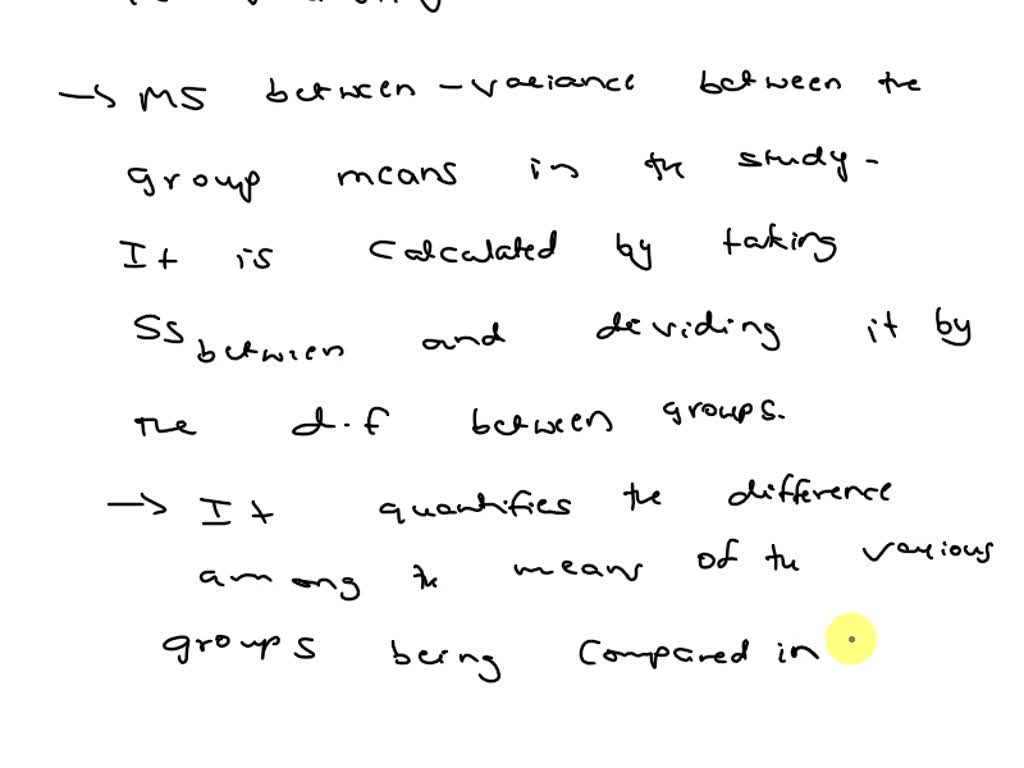 → MS between - variance between the
group means in the study -
It is calculated by taking
SS between and deviding it by
The d.f between groups.
→ It quantifies the difference
among the means of the various
groups being compared in